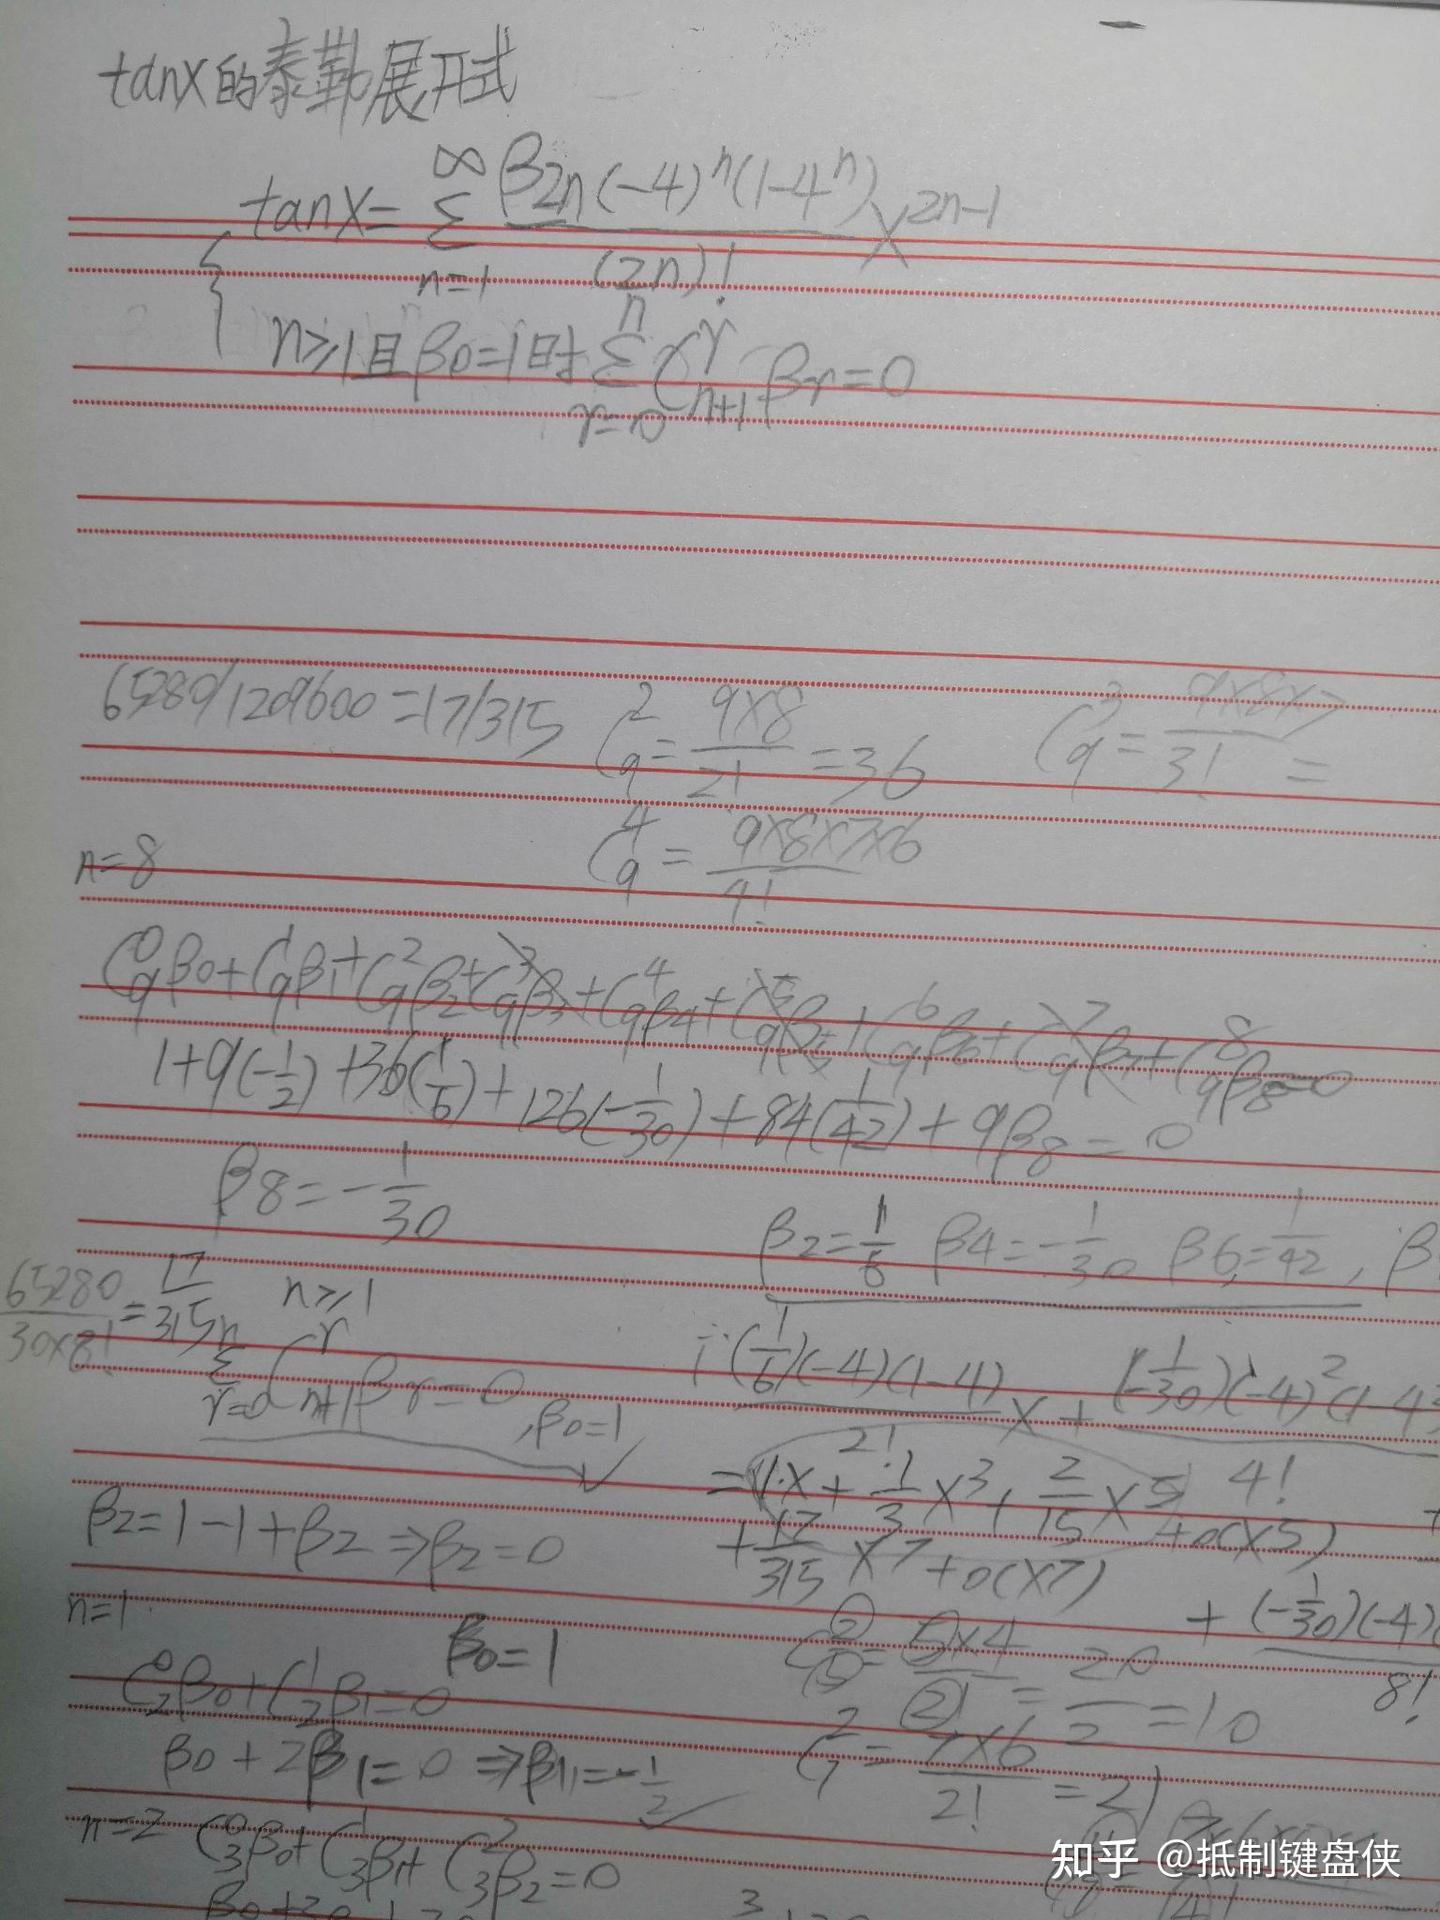 tanx的泰勒展开式
tanx = ∑_{n=1}^{∞} β2n(-4)^n(1-4^n) / (2n)! x^{2n-1}
n≥1且β0=1时 ∑_{r=0}^{n} C_{n+1}^{r} βr=0
65280/1209600=17/315 C_9^2 = 9×8 / 2! = 36 C_9^3 = 9×8×7 / 3! =
n=8 C_9^4 = 9×8×7×6 / 4!
C_9^0 β0 + C_9^1 β1 + C_9^2 β2 + C_9^3 β3 + C_9^4 β4 + C_9^5 β5 + C_9^6 β6 + C_9^7 β7 + C_9^8 β8 = 0
1+9(-1/2)+36(1/6)+126(-1/30)+84(1/42)+9β8=0
β8=-1/30
β2=1/6 β4=-1/30 β6=1/42, β
65280 / 30×8! = 17/315 n≥1
∑_{r=0}^{n} C_{n+1}^{r} βr=0, β0=1 ✓
(1/6)(-4)(1-4) / 2! x + (-1/30)(-4)^2(1-4 / 4!
=1·x + 1/3 x^3 + 2/15 x^5 + o(x5)
+ 17/315 x^7 + o(x7)
+ (-1/30)(-4) / 8!
β2=1-1+β2 ⇒β2=0
n=1 β0=1
C_2^0 β0 + C_2^1 β1=0
β0+2β1=0 ⇒β1=-1/2 ✓
= 5×4 / 2! = 20/2 = 10
C_7^2 = 7×6 / 2! = 21
n=2 C_3^0 β0 + C_3^1 β1 + C_3^2 β2=0
知乎 @抵制键盘侠